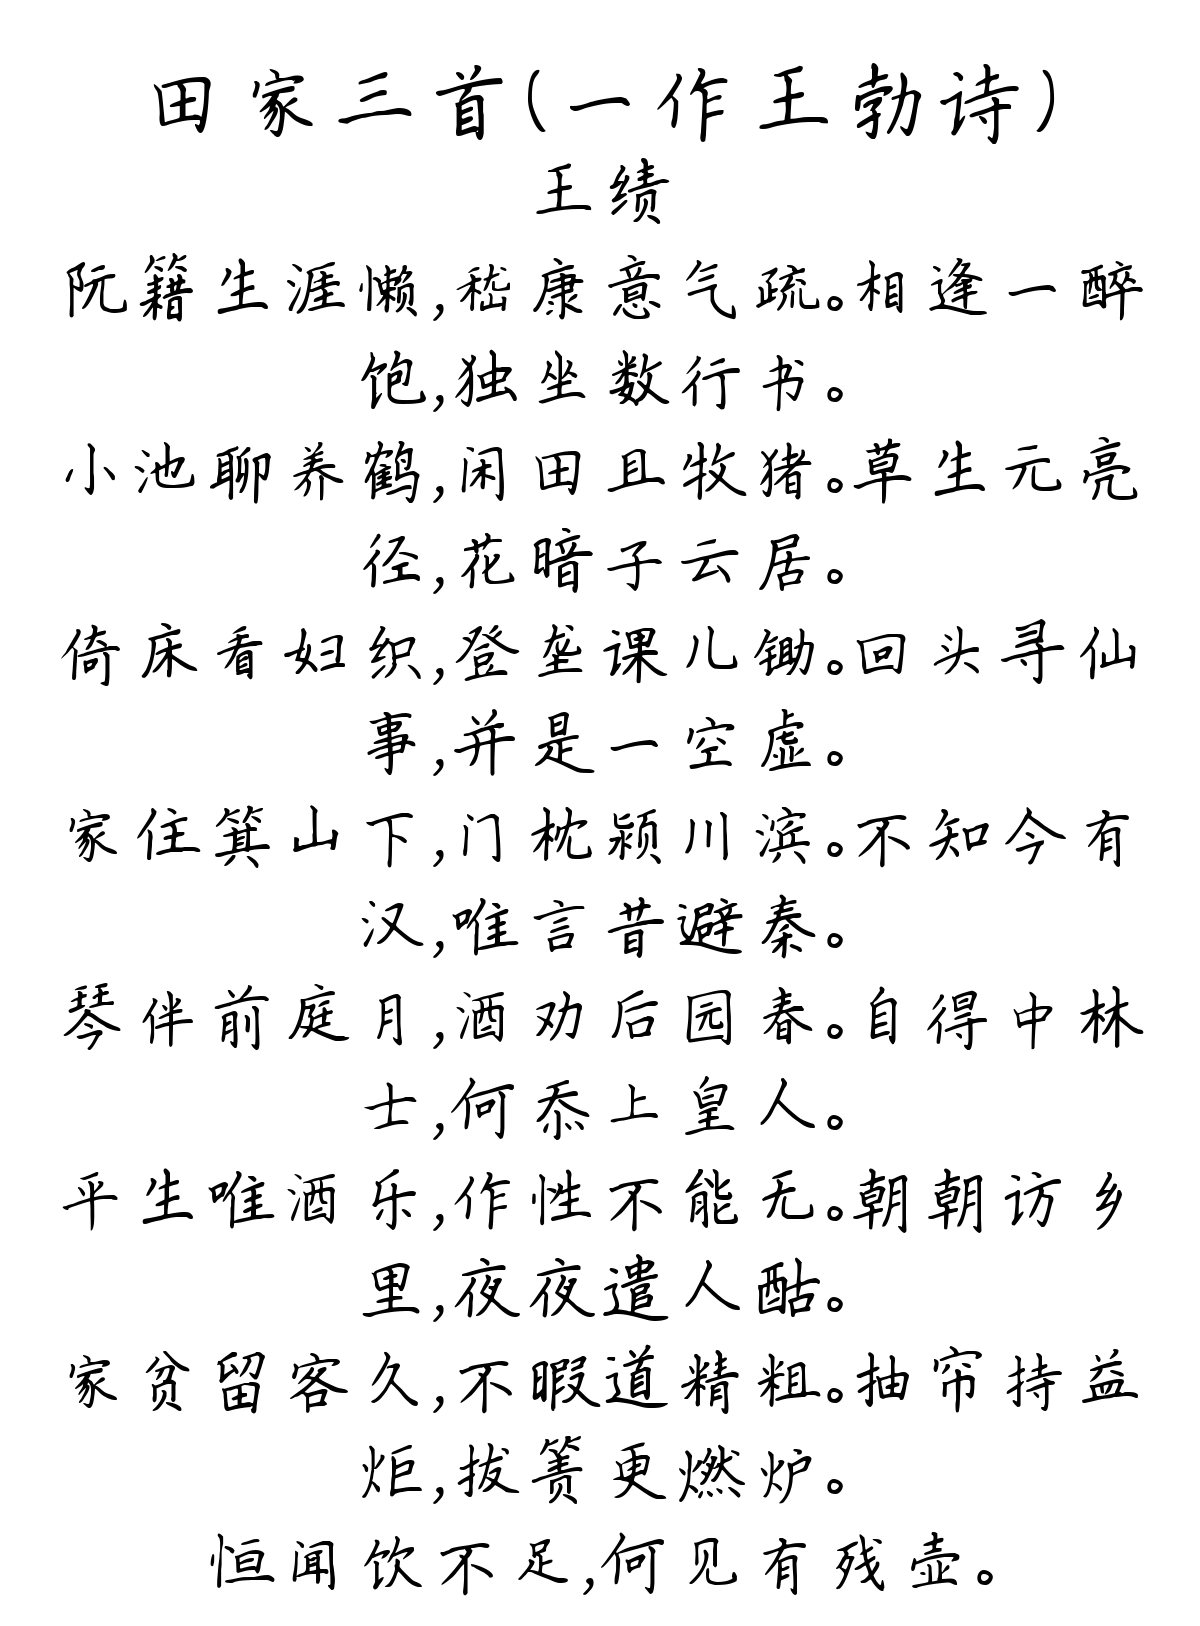 田家三首(一作王勃诗)
王绩
阮籍生涯懒,嵇康意气疏。相逢一醉
饱,独坐数行书。
小池聊养鹤,闲田且牧猪。草生元亮
径,花暗子云居。
倚床看妇织,登垄课儿锄。回头寻仙
事,并是一空虚。
家住箕山下,门枕颍川滨。不知今有
汉,唯言昔避秦。
琴伴前庭月,酒劝后园春。自得中林
士,何忝上皇人。
平生唯酒乐,作性不能无。朝朝访乡
里,夜夜遣人酤。
家贫留客久,不暇道精粗。抽帘持益
炬,拔箦更燃炉。
恒闻饮不足,何见有残壶。